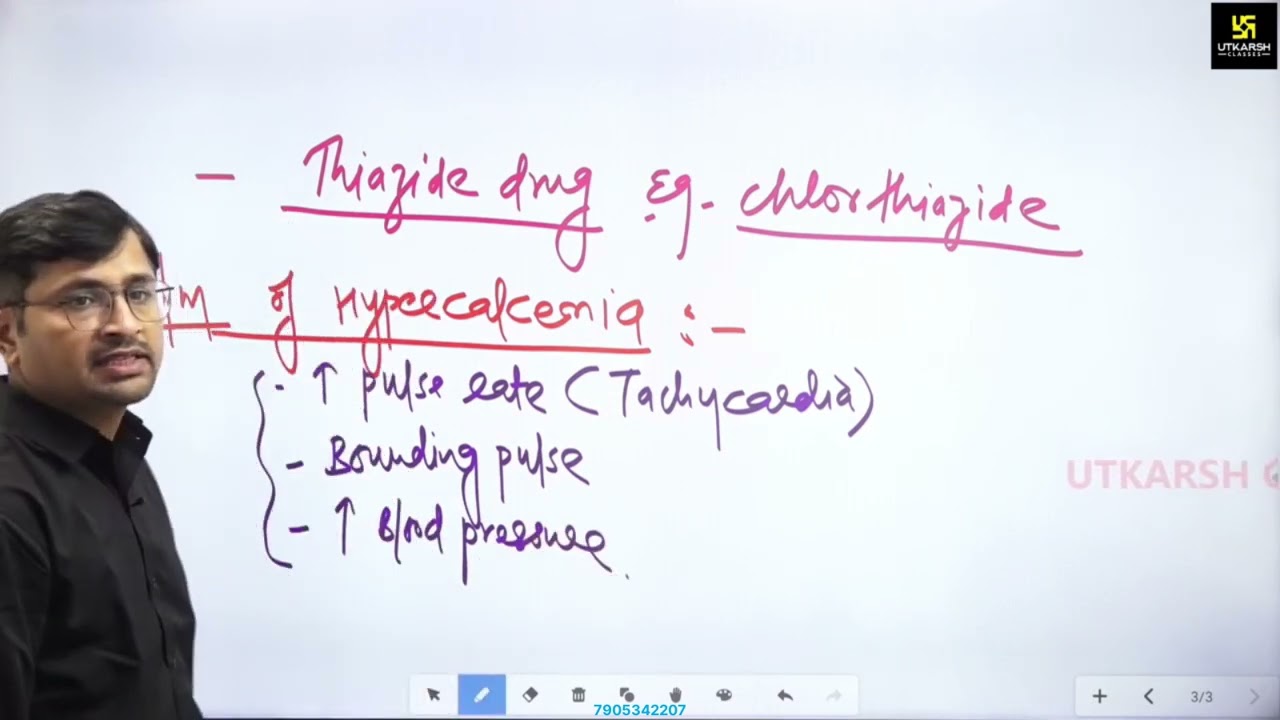 UTKARSH
CLASSES
- Thiazide drug Eg. chlorthiazide
of Hypercalcemia :-
- ↑ pulse rate (Tachycardia)
- Bounding pulse
- ↑ Blood pressure
UTKARSH
3/3
7905342207